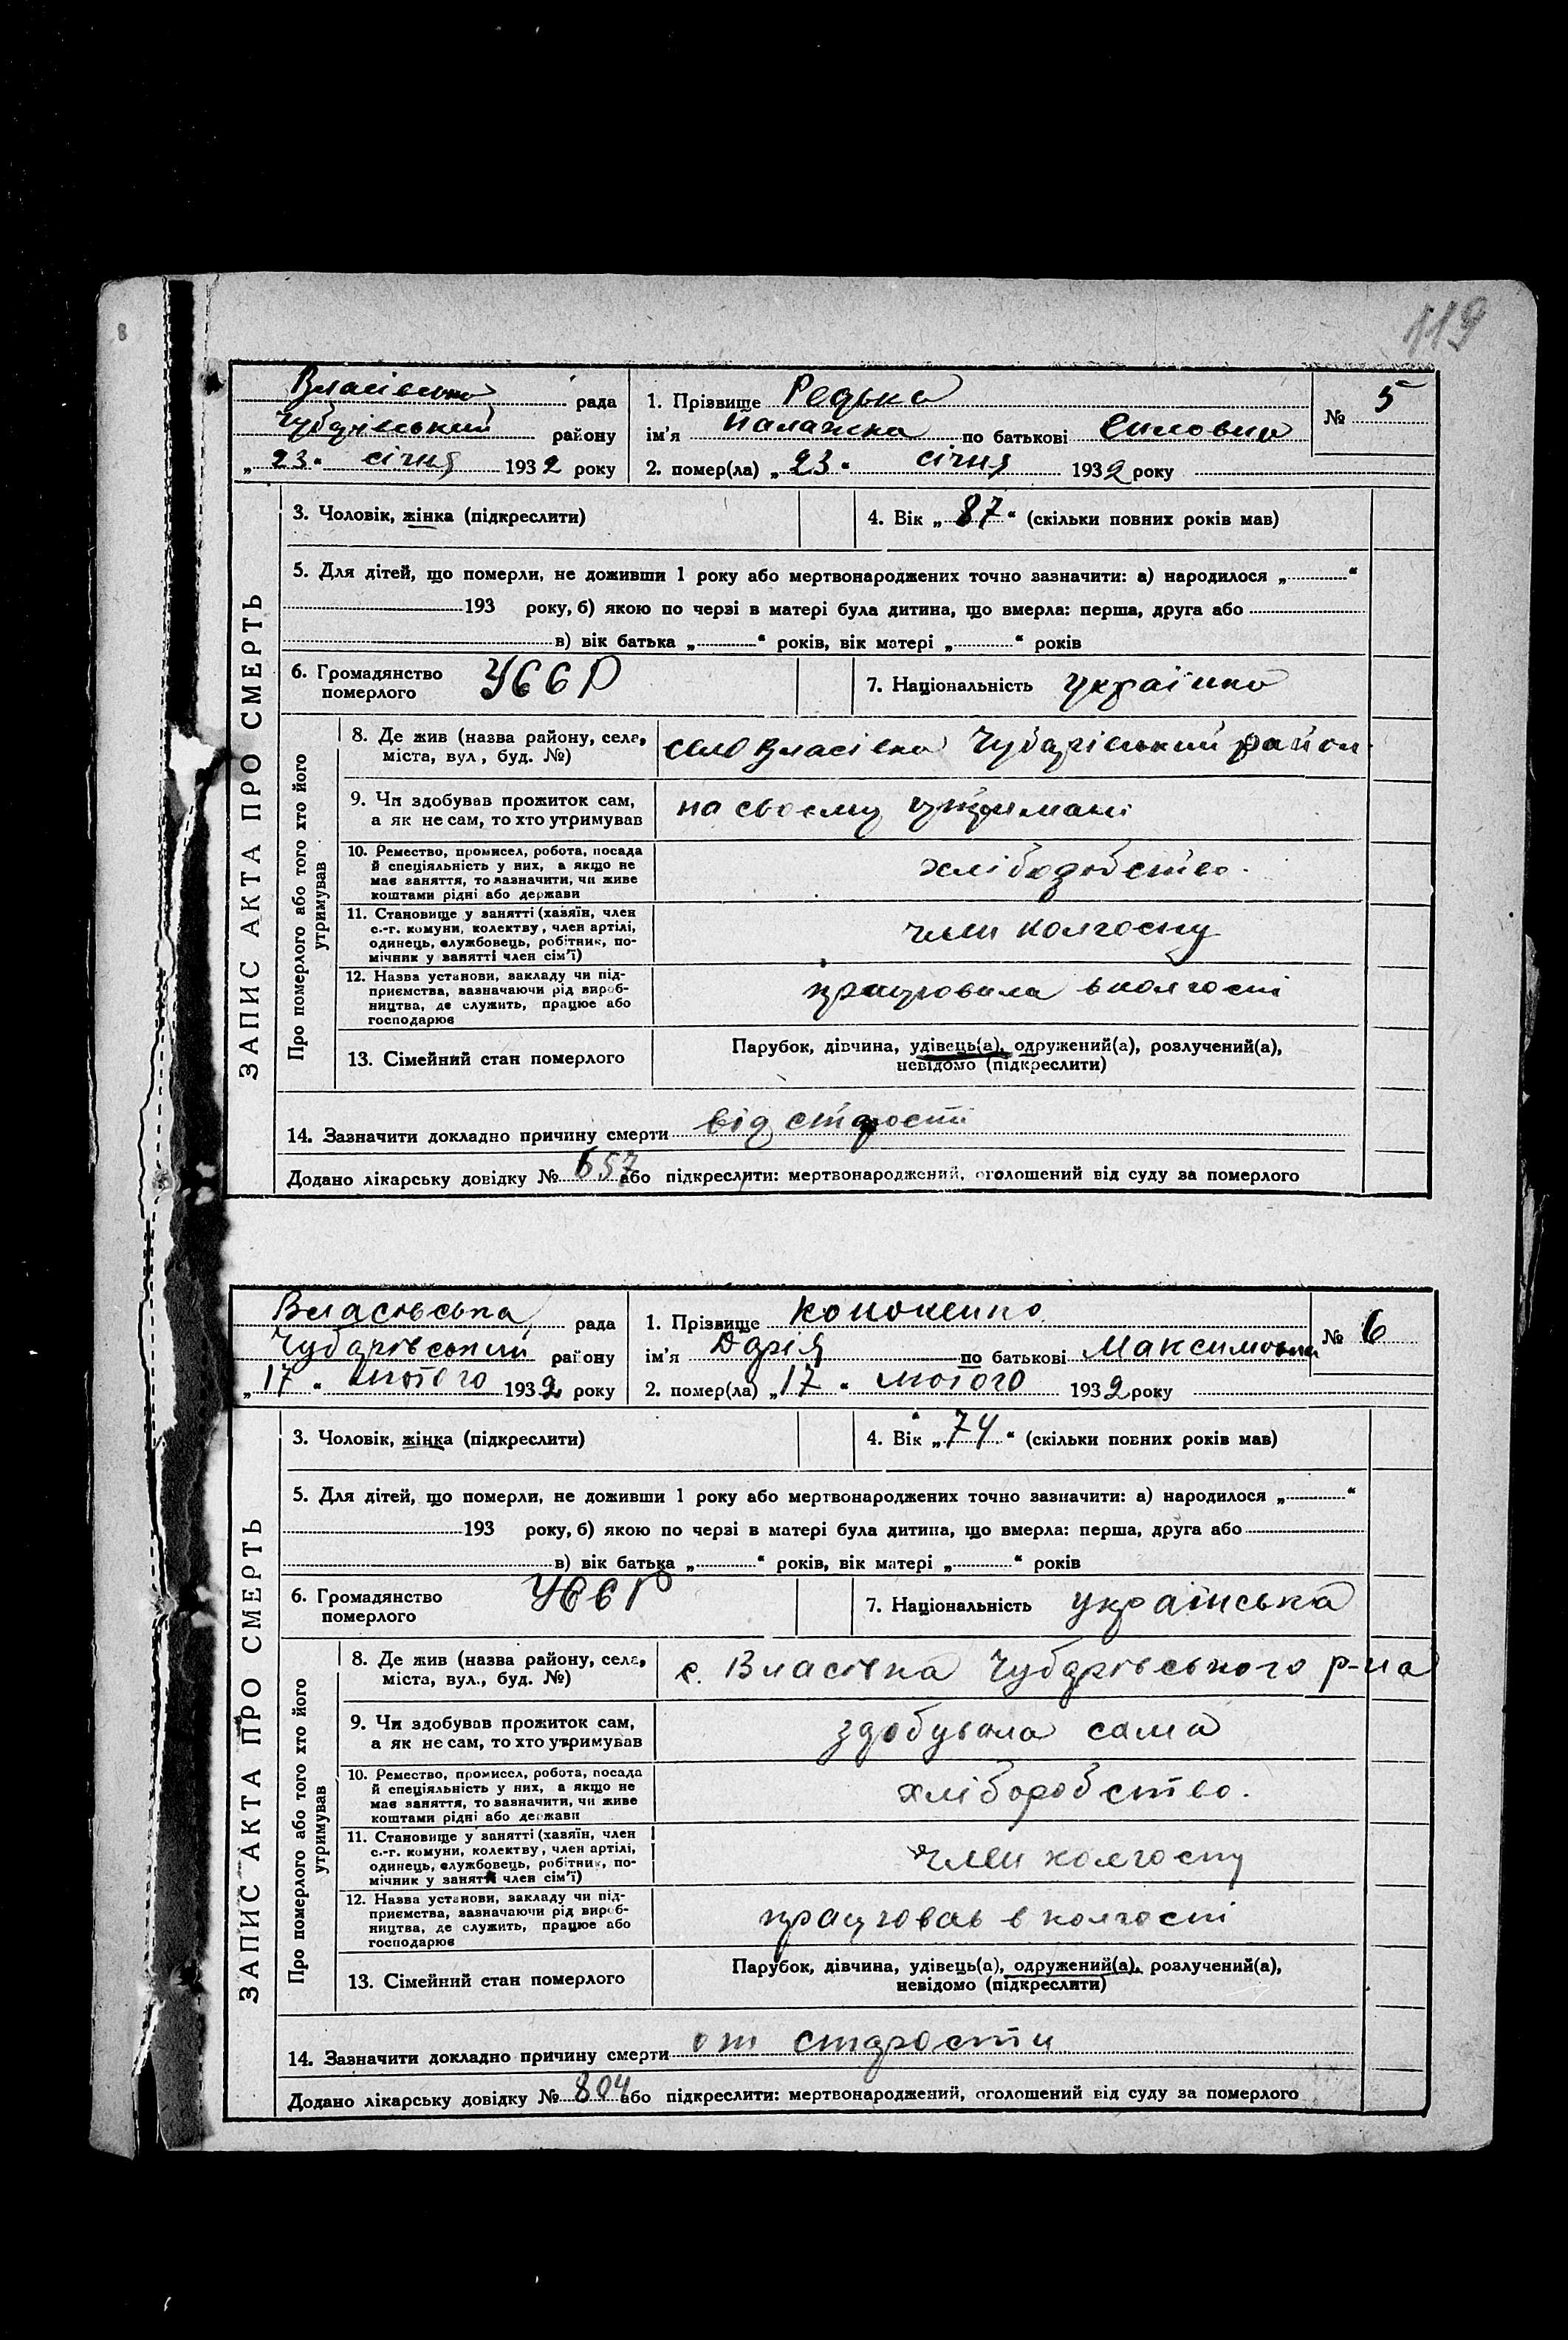 119
8
Власівська рада
Чубарівський району
„ 23 “ січня 1932 року
1. Прізвище Редька
ім'я Палажка по батькові Силовна
2. помер(ла) „ 23 “ січня 1932 року
№ 5
ЗАПИС АКТА ПРО СМЕРТЬ
3. Чоловік, жінка (підкреслити)
4. Вік „ 87 “ (скільки повних років мав)
5. Для дітей, що померли, не доживши 1 року або мертвонароджених точно зазначити: а) народилося „ “
193 року, б) якою по черзі в матері була дитина, що вмерла: перша, друга або
в) вік батька „ “ років, вік матері „ “ років
6. Громадянство померлого УССР
7. Національність українка
Про померлого або того хто його утримував
8. Де жив (назва району, села, міста, вул., буд. №)
село Власівка Чубарівський район
9. Чи здобував прожиток сам, а як не сам, то хто утримував
на своєму утримані
10. Ремество, промисел, робота, посада й спеціяльність у них, а якщо не має заняття, то зазначити, чи живе коштами рідні або держави
хліборобство.
11. Становище у занятті (хазяїн, член с.-г. комуни, колектву, член артілі, одинець, службовець, робітник, помічник у занятті член сім'ї)
член колгоспу
12. Назва установи, закладу чи підприємства, зазначаючи рід виробництва, де служить, працює або господарює
працювала в колгоспі
13. Сімейний стан померлого
Парубок, дівчина, удівець(а), одружений(а), розлучений(а),
невідомо (підкреслити)
14. Зазначити докладно причину смерти від старости
Додано лікарську довідку № 657 або підкреслити: мертвонароджений, оголошений від суду за померлого
Власівська рада
Чубарівський району
„ 17 “ лютого 1932 року
1. Прізвище Кононенко
ім'я Дарія по батькові Максимовна
2. помер(ла) „ 17 “ лютого 1932 року
№ 6
ЗАПИС АКТА ПРО СМЕРТЬ
3. Чоловік, жінка (підкреслити)
4. Вік „ 74 “ (скільки повних років мав)
5. Для дітей, що померли, не доживши 1 року або мертвонароджених точно зазначити: а) народилося „ “
193 року, б) якою по черзі в матері була дитина, що вмерла: перша, друга або
в) вік батька „ “ років, вік матері „ “ років
6. Громадянство померлого УССР
7. Національність українська
Про померлого або того хто його утримував
8. Де жив (назва району, села, міста, вул., буд. №)
с. Власівка Чубарівського р-на
9. Чи здобував прожиток сам, а як не сам, то хто утримував
здобувала сама
10. Ремество, промисел, робота, посада й спеціяльність у них, а якщо не має заняття, то зазначити, чи живе коштами рідні або держави
хліборобство.
11. Становище у занятті (хазяїн, член с.-г. комуни, колектву, член артілі, одинець, службовець, робітник, помічник у занятті член сім'ї)
член колгоспу
12. Назва установи, закладу чи підприємства, зазначаючи рід виробництва, де служить, працює або господарює
працював в колгоспі
13. Сімейний стан померлого
Парубок, дівчина, удівець(а), одружений(а), розлучений(а),
невідомо (підкреслити)
14. Зазначити докладно причину смерти от старости
Додано лікарську довідку № 804 або підкреслити: мертвонароджений, оголошений від суду за померлого